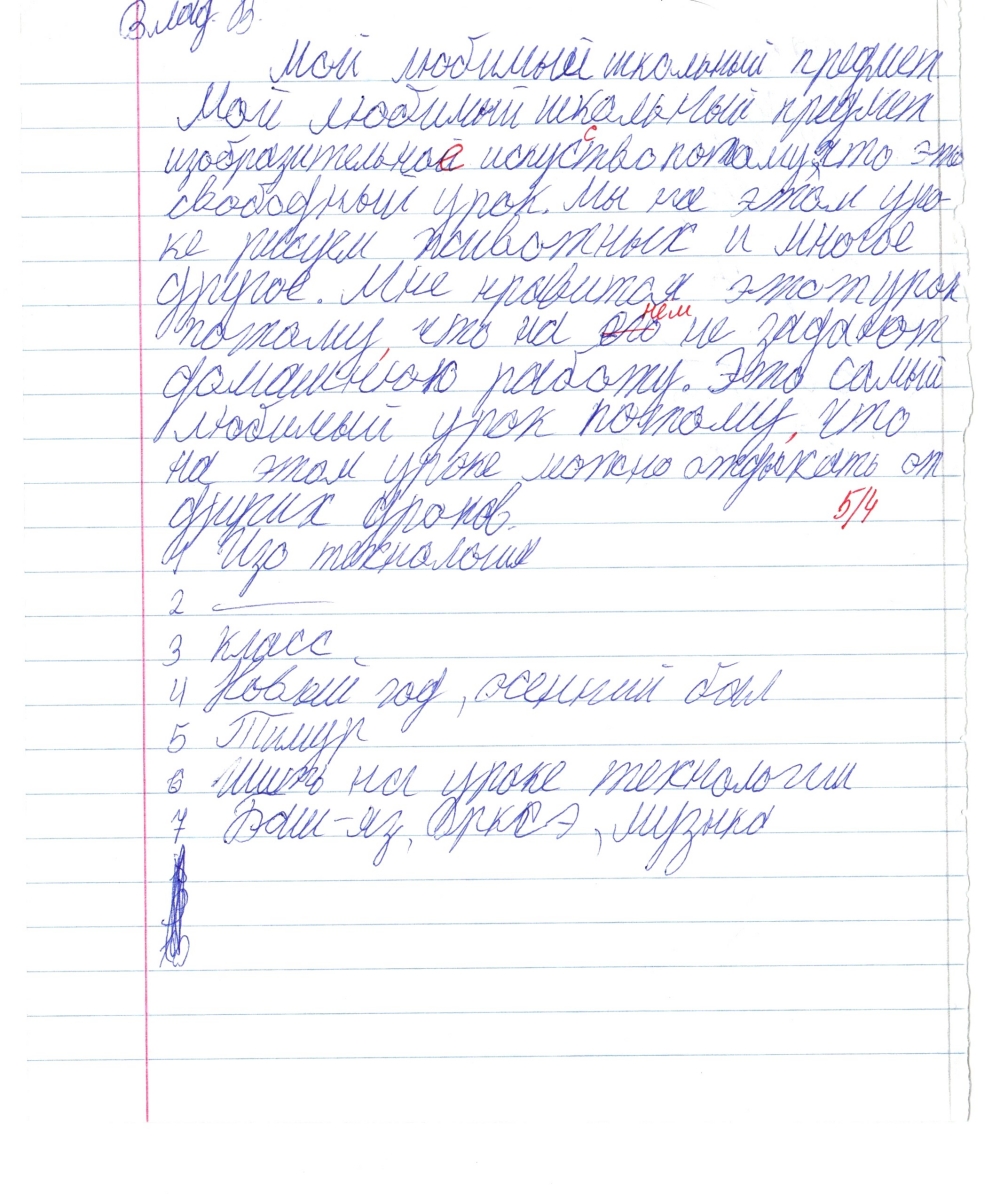 Влад. В.
Мой любимый школьный предмет
Мой любимый школьный предмет
изобразительное искуство потому, что это
с
свободный урок. Мы на этом уро-
ке рисуем животных и многое
другое. Мне нравится этот урок
нем
потому, что на его не задают
домашнюю работу. Это самый
любимый урок потому, что
на этом уроке можно отдыхать от
других уроков.
5/4
1 Изо технология
2 —
3 класс
4 Новый год, осенний бал
5 Тимур
6 Шить на уроке технологии
7 Баш-яз, ОРКСЭ, музыка